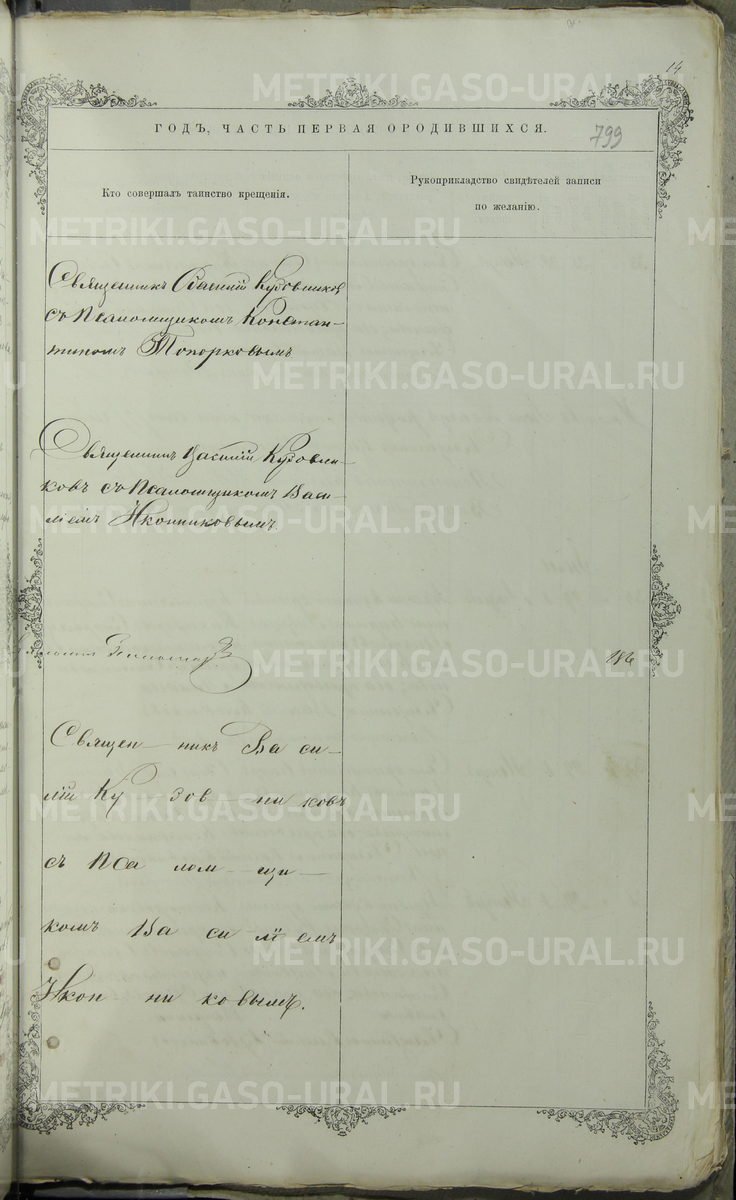 14
ГОДЪ, ЧАСТЬ ПЕРВАЯ О РОДИВШИХСЯ.
799
Кто совершалъ таинство крещенія.
Рукоприкладство свидѣтелей записи
по желанію.
Священникъ Василій Кузовников
съ Псаломщикомъ Констан-
тиномъ Топорковымъ
Священникъ Василій Кузовни-
ковъ съ Псаломщикомъ Васи-
ліемъ Иконниковымъ
186
Священ- никъ Ва си-
лій Ку зов- ни ковъ
съ Пса лом- щи-
комъ Ва си лі емъ
Икон ни ко вымъ.
METRIKI.GASO-URAL.RU